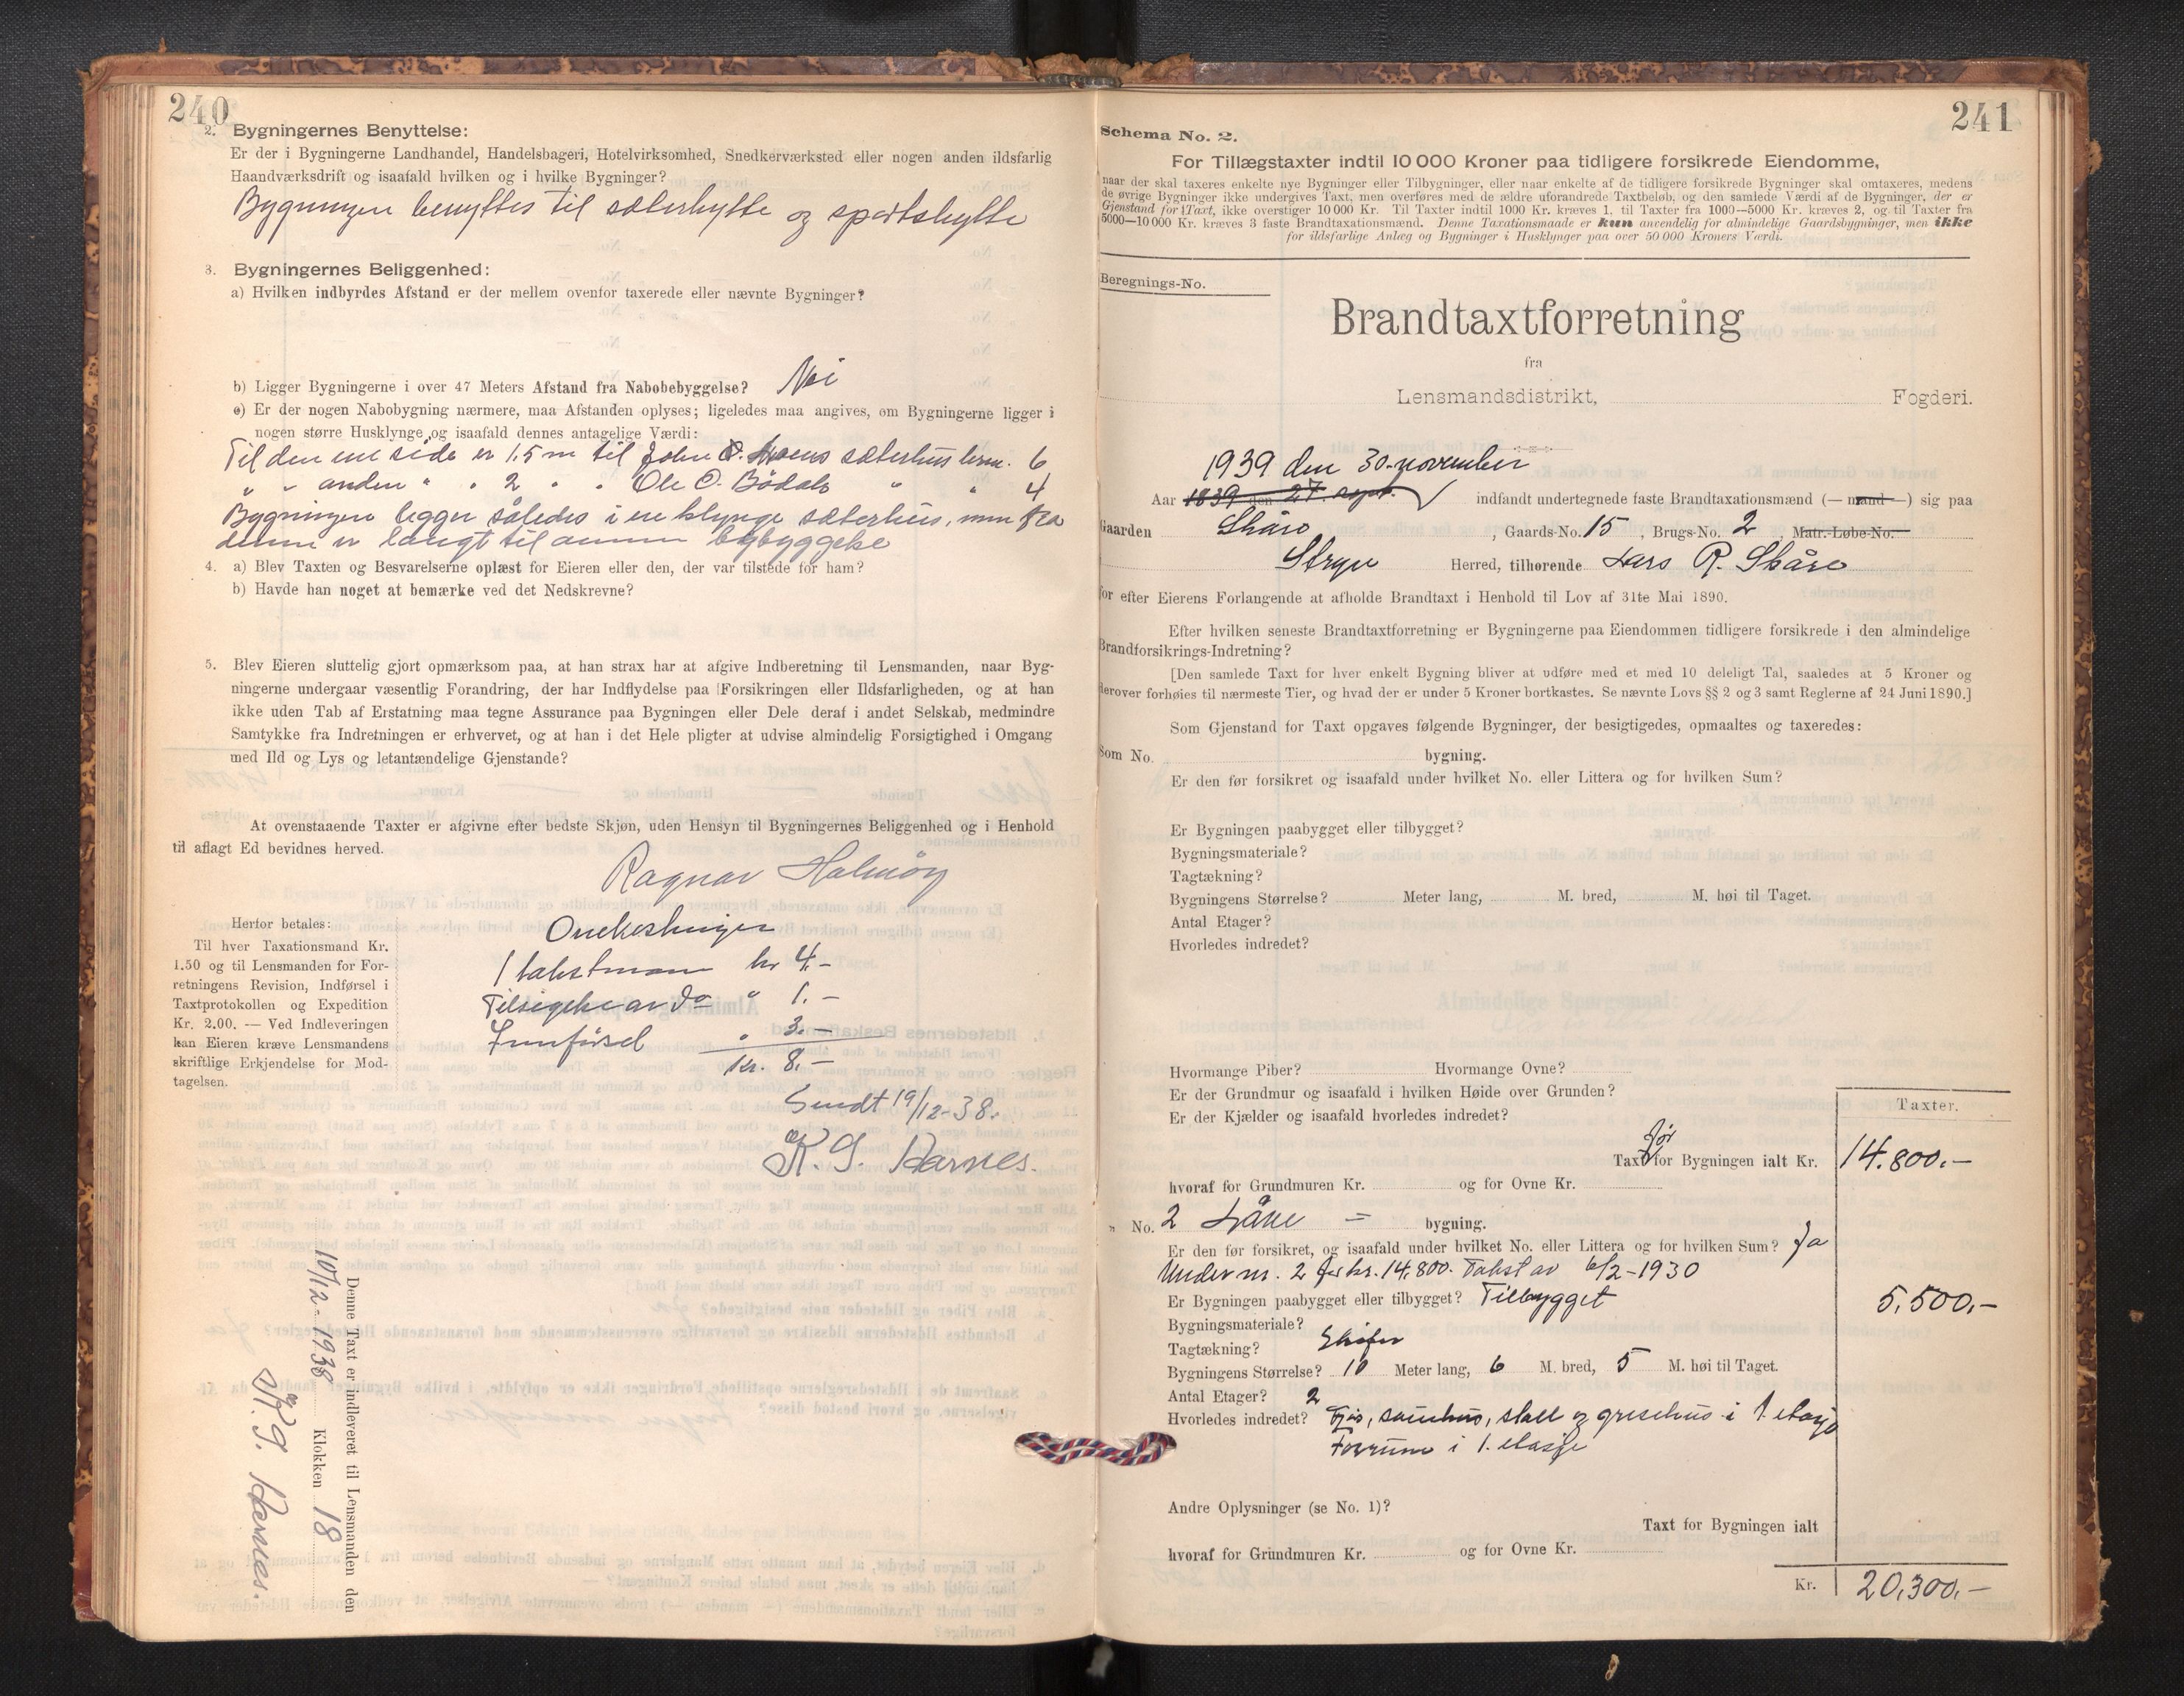 240
2. Bygningernes Benyttelse:
Er der i Bygningerne Landhandel, Handelsbageri, Hotelvirksomhed, Snedkerværksted eller nogen anden ildsfarlig
Haandværksdrift og isaafald hvilken og i hvilke Bygninger?
Bygningen benyttes til sæterhytte og sportshytte
3. Bygningernes Beliggenhed:
a) Hvilken indbyrdes Afstand er der mellem ovenfor taxerede eller nævnte Bygninger?
b) Ligger Bygningerne i over 47 Meters Afstand fra Nabobebyggelse? Nei
c) Er der nogen Nabobygning nærmere, maa Afstanden oplyses; ligeledes maa angives, om Bygningerne ligger i
nogen større Husklynge og isaafald dennes antagelige Værdi:
Til den ene side er 1.5 m til John sæterhus brnr. 6
" " anden " " 2 " " Ole O. Bödals " " 4
Bygningen legger således i en klynge sæterhus, men fra
denne er langt til annen bebyggelse
4. a) Blev Taxten og Besvarelserne oplæst for Eieren eller den, der var tilstede for ham?
b) Havde han noget at bemærke ved det Nedskrevne?
5. Blev Eieren sluttelig gjort opmærksom paa, at han strax har at afgive Indberetning til Lensmanden, naar Byg-
ningerne undergaar væsentlig Forandring, der har Indflydelse paa Forsikringen eller Ildsfarligheden, og at han
ikke uden Tab af Erstatning maa tegne Assurance paa Bygningen eller Dele deraf i andet Selskab, medmindre
Samtykke fra Indretningen er erhvervet, og at han i det Hele pligter at udvise almindelig Forsigtighed i Omgang
med Ild og Lys og letantændelige Gjenstande?
At ovenstaaende Taxter er afgivne efter bedste Skjøn, uden Hensyn til Bygningernes Beliggenhed og i Henhold
til aflagt Ed bevidnes herved.
Ragnar Holmöy
Herfor betales:
Til hver Taxationsmand Kr.
1.50 og til Lensmanden for For-
retningens Revision, Indførsel i
Taxtprotokollen og Expedition
Kr. 2.00. — Ved Indleveringen
kan Eieren kræve Lensmandens
skriftlige Erkjendelse for Mod-
tagelsen.
Omkostninger
1 takstmann kr 4.-
Tilsigelse av do " 1.-
Innførsel " 3.-
Kr. 8.-
Sendt 19/12-38.
K. G. Harnes.
Denne Taxt er indleveret til Lensmanden den
10/12-1938 Klokken 18
K. G. Harnes.
241
Schema No. 2.
For Tillægstaxter indtil 10 000 Kroner paa tidligere forsikrede Eiendomme,
naar der skal taxeres enkelte nye Bygninger eller Tilbygninger, eller naar enkelte af de tidligere forsikrede Bygninger skal omtaxeres, medens
de øvrige Bygninger ikke undergives Taxt, men overføres med de ældre uforandrede Taxtbeløb, og den samlede Værdi af de Bygninger, der er
Gjenstand for Taxt, ikke overstiger 10 000 Kr. Til Taxter indtil 1000 Kr. kræves 1, til Taxter fra 1000—5000 Kr. kræves 2, og til Taxter fra
5000—10 000 Kr. kræves 3 faste Brandtaxationsmænd. Denne Taxationsmaade er kun anvendelig for almindelige Gaardsbygninger, men ikke
for ildsfarlige Anlæg og Bygninger i Husklynger paa over 50 000 Kroners Værdi.
Beregnings-No.
Brandtaxtforretning
fra
Lensmandsdistrikt, Fogderi.
1939 den 30. november
Aar 1839 den 27. sept. indfandt undertegnede faste Brandtaxationsmænd (— mand —) sig paa
Gaarden Skåre, Gaards-No. 15, Brugs-No. 2, Matr.-Løbe-No.
Stryn Herred, tilhørende Lars R. Skåre
for efter Eierens Forlangende at afholde Brandtaxt i Henhold til Lov af 31te Mai 1890.
Efter hvilken seneste Brandtaxtforretning er Bygningerne paa Eiendommen tidligere forsikrede i den almindelige
Brandforsikrings-Indretning?
[Den samlede Taxt for hver enkelt Bygning bliver at udføre med et med 10 deleligt Tal, saaledes at 5 Kroner og
derover forhøies til nærmeste Tier, og hvad der er under 5 Kroner bortkastes. Se nævnte Lovs §§ 2 og 3 samt Reglerne af 24 Juni 1890.]
Som Gjenstand for Taxt opgaves følgende Bygninger, der besigtigedes, opmaaltes og taxeredes:
Som No. bygning.
Er den før forsikret og isaafald under hvilket No. eller Littera og for hvilken Sum?
Er Bygningen paabygget eller tilbygget?
Bygningsmateriale?
Tagtækning?
Bygningens Størrelse? Meter lang, M. bred, M. høi til Taget.
Antal Etager?
Hvorledes indredet?
Hvormange Piber? Hvormange Ovne?
Er der Grundmur og isaafald i hvilken Høide over Grunden?
Er der Kjælder og isaafald hvorledes indredet?
Taxter.
før
Taxt for Bygningen ialt Kr. 14.800.-
hvoraf for Grundmuren Kr. og for Ovne Kr.
" No. 2 Låve - bygning.
Er den før forsikret, og isaafald under hvilket No. eller Littera og for hvilken Sum? Ja
Under nr. 2 for kr. 14.800. Takst av 6/2-1930
Er Bygningen paabygget eller tilbygget? Tilbygget 5.500,-
Bygningsmateriale?
Tagtækning? Skifer
Bygningens Størrelse? 10 Meter lang, 6 M. bred, 5 M. høi til Taget.
Antal Etager? 2
Hvorledes indredet? Fjøs, sauehus, stall og grisehus i 1. etasje
Forrum i 1. etasje
Andre Oplysninger (se No. 1)?
Taxt for Bygningen ialt
hvoraf for Grundmuren Kr. og for Ovne Kr.
Kr. 20,300,-